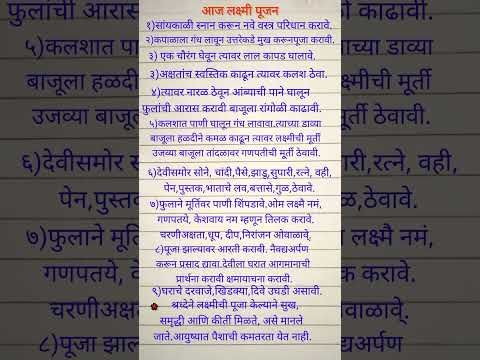 आज लक्ष्मी पूजन
१)सांयकाळी स्नान करून नवे वस्त्र परिधान करावे.
२)कपाळाला गंध लावून उत्तरेकडे मुख करूनपूजा करावी.
३) एक चौरंग घेवून त्यावर लाल कापड घालावे.
३)अक्षतांच स्वस्तिक काढून त्यावर कलश ठेवा.
४)त्यावर नारळ ठेवून आंब्याची पाने घालून
फुलांची आरास करावी बाजूला रांगोळी काढावी.
५)कलशात पाणी घालून गंध लावावा.त्याच्या डाव्या
बाजूला हळदीने कमळ काढून त्यावर लक्ष्मीची मूर्ती
उजव्या बाजूला तांदळावर गणपतीची मूर्ती ठेवावी.
६)देवीसमोर सोने, चांदी,पैसे,झाडु,सुपारी,रत्ने, वही,
पेन,पुस्तक,भाताचे लव,बत्तासे,गुळ,ठेवावे.
७)फुलाने मूर्तिवर पाणी शिंपडावे.ओम लक्ष्मै नमं,
गणपतये, केशवाय नम म्हणून तिलक करावे.
चरणीअक्षता,धूप, दीप,निरांजन ओवाळावे.
८)पूजा झाल्यावर आरती करावी. नैवद्यअर्पण
करून प्रसाद द्यावा.देवीला घरात आगमनाची
प्रार्थना करावी क्षमायाचना करावी.
९)घराचे दरवाजे,खिडक्या,दिवे उघडी असावी.
श्रध्देने लक्ष्मीची पूजा केल्याने सुख,
समृद्धी आणि कीर्ती मिळते, असे मानले
जाते.आयुष्यात पैशाची कमतरता येत नाही.